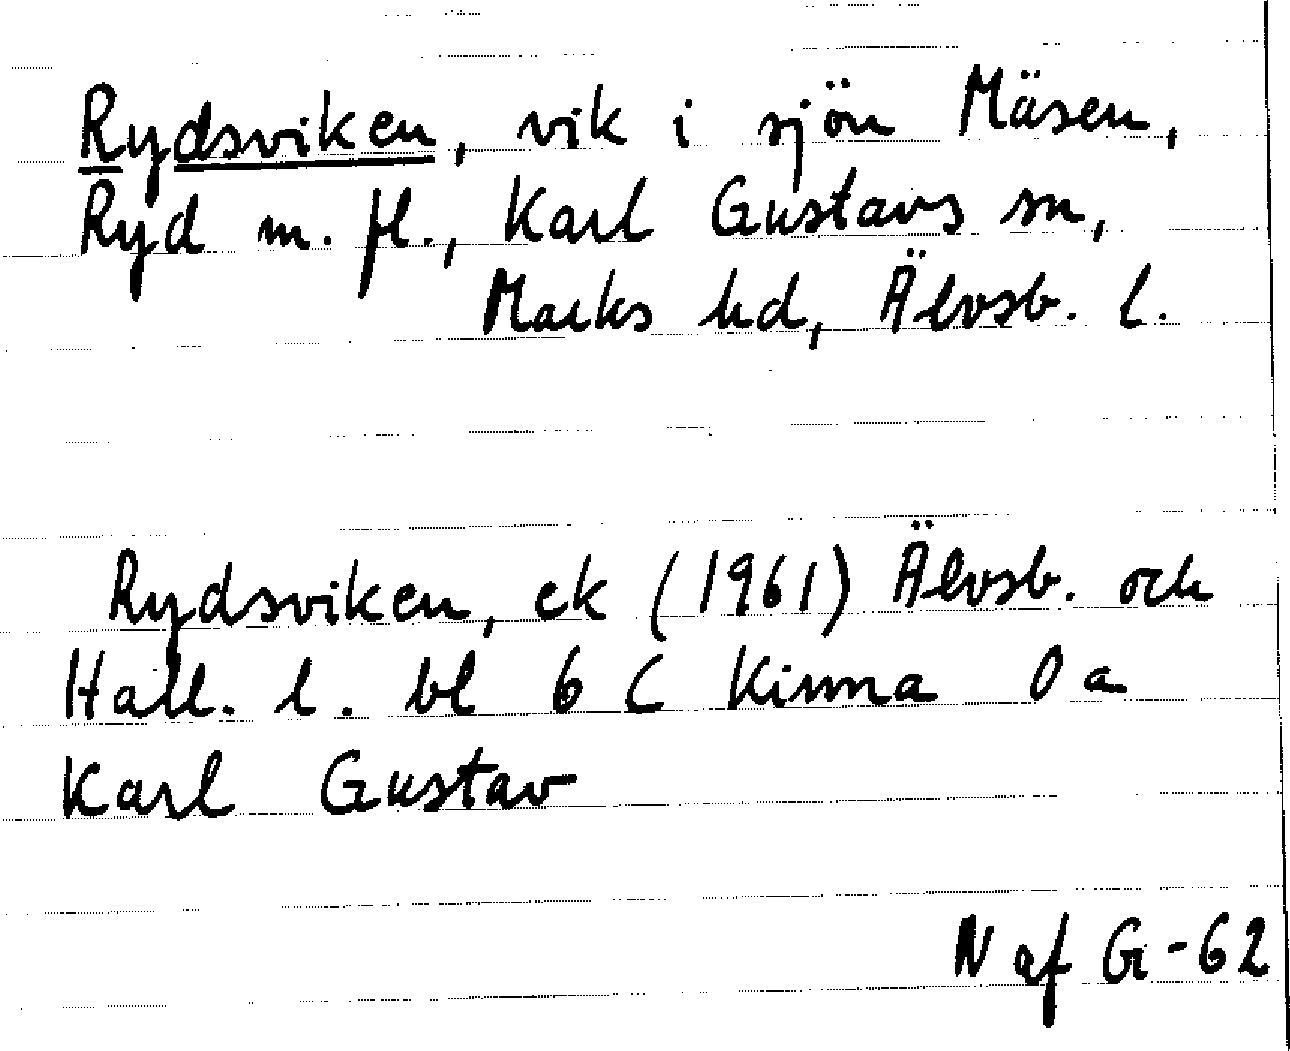 Rydsviken, vik i sjön Mäsen,
Ryd m. fl., Karl Gustavs sn,
Marks hd, Älvsb. l.
Rydsviken, ek (1961) Älvsb. och
Hall. l. bl 6 C Kinna 0 a
Karl Gustav
N af G-62